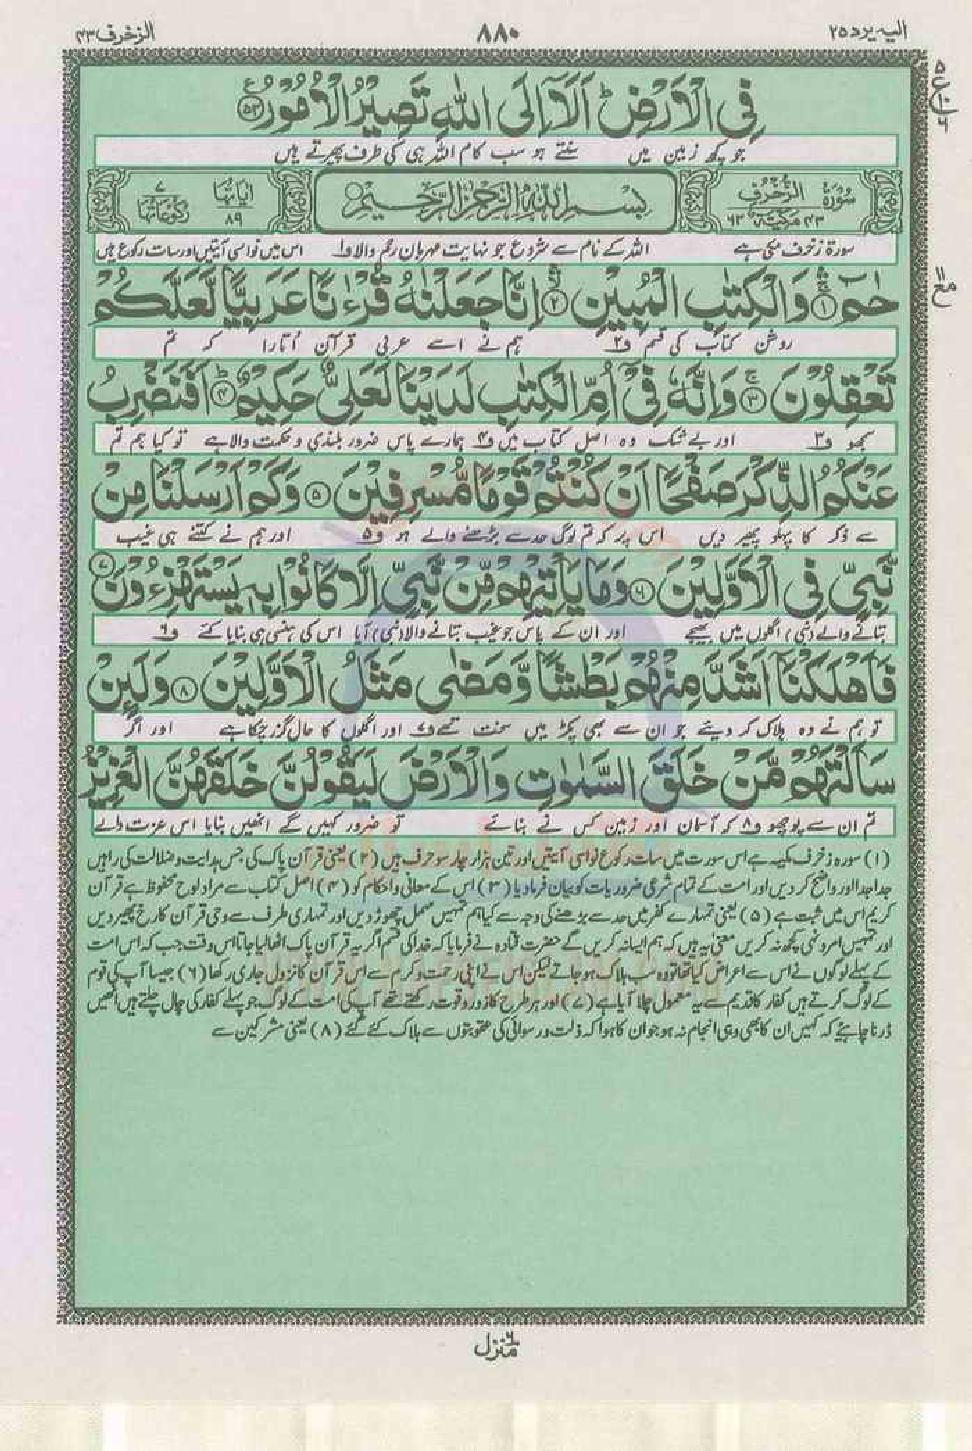 الیه یرد ۲۵
۸۸۰
الزخرف ۴۳
فِي الْاَرْضِ ؕ اَلَاۤ اِلَى اللّٰهِ تَصِيْرُ الْاُمُوْرُ ﴿۵۳﴾
جو کچھ زمین میں سنتے ہو سب کام اللہ ہی کی طرف پھرتے ہیں
سُوْرَةُ الزُّخْرُفِ
۴۳ مَكِّيَّةٌ ۶۳
بِسْمِ اللّٰهِ الرَّحْمٰنِ الرَّحِيْمِ
اٰيَاتُهَا ۸۹
رُكُوْعَاتُهَا ۷
سورۃ زخرف مکی ہے اللہ کے نام سے شروع جو نہایت مہربان رحم والا ف۱ اس میں نواسی آیتیں اور سات رکوع ہیں
حٰمٓ ﴿۱﴾ وَالْكِتٰبِ الْمُبِيْنِ ﴿۲﴾ اِنَّا جَعَلْنٰهُ قُرْءٰنًا عَرَبِيًّا لَّعَلَّكُمْ
روشن کتاب کی قسم ف۲ ہم نے اسے عربی قرآن اُتارا کہ تم
تَعْقِلُوْنَ ﴿۳﴾ وَاِنَّهٗ فِيْۤ اُمِّ الْكِتٰبِ لَدَيْنَا لَعَلِيٌّ حَكِيْمٌ ﴿۴﴾ اَفَنَضْرِبُ
سمجھو ف۳ اور بے شک وہ اصل کتاب میں ف۴ ہمارے پاس ضرور بلندی و حکمت والا ہے تو کیا ہم تم
عَنْكُمُ الذِّكْرَ صَفْحًا اَنْ كُنْتُمْ قَوْمًا مُّسْرِفِيْنَ ﴿۵﴾ وَكَمْ اَرْسَلْنَا مِنْ
سے ذکر کا پہلو پھیر دیں اس پر کہ تم لوگ حد سے بڑھنے والے ہو ف۵ اور ہم نے کتنے ہی غیب
نَّبِيٍّ فِي الْاَوَّلِيْنَ ﴿۶﴾ وَمَا يَاْتِيْهِمْ مِّنْ نَّبِيٍّ اِلَّا كَانُوْا بِهٖ يَسْتَهْزِءُوْنَ ﴿۷﴾
بتانے والے (نبی) اگلوں میں بھیجے اور ان کے پاس جو غیب بتانے والا (نبی) آیا اس کی ہنسی ہی بنایا کئے ف۶
فَاَهْلَكْنَاۤ اَشَدَّ مِنْهُمْ بَطْشًا وَّمَضٰى مَثَلُ الْاَوَّلِيْنَ ﴿۸﴾ وَلَىِٕنْ
تو ہم نے وہ ہلاک کر دیئے جو ان سے بھی پکڑ میں سخت تھے ف۷ اور اگلوں کا حال گزر چکا ہے اور اگر
سَاَلْتَهُمْ مَّنْ خَلَقَ السَّمٰوٰتِ وَالْاَرْضَ لَيَقُوْلُنَّ خَلَقَهُنَّ الْعَزِيْزُ
تم ان سے پوچھو ف۸ کہ آسمان اور زمین کس نے بنائے تو ضرور کہیں گے انھیں بنایا اس عزت والے
(۱) سورہ زخرف مکیہ ہے اس سورت میں سات رکوع نواسی آیتیں اور تین ہزار چار سو حرف ہیں (۲) یعنی قرآن پاک کی جس ہدایت و ضلالت کی راہیں
جدا جدا اور واضح کر دیں اور امت کے تمام شرعی ضروریات کو بیان فرما دیا (۳) اس کے معانی و احکام کو (۴) اصل کتاب سے مراد لوح محفوظ ہے قرآن
کریم اس میں ثبت ہے (۵) یعنی تمہارے کفر میں حد سے بڑھنے کی وجہ سے کیا ہم تمہیں مہمل چھوڑ دیں اور تمہاری طرف سے وحی قرآن کا رخ پھیر دیں
اور تمہیں امر و نہی کچھ نہ کریں معنی یہ ہیں کہ ہم ایسا نہ کریں گے حضرت قتادہ نے فرمایا کہ خدا کی قسم اگر یہ قرآن پاک اٹھا لیا جاتا اس وقت جب کہ اس امت
کے پہلے لوگوں نے اس سے اعراض کیا تھا تو وہ سب ہلاک ہو جاتے لیکن اس نے اپنی رحمت و کرم سے اس قرآن کا نزول جاری رکھا (۶) جیسا آپ کی قوم
کے لوگ کرتے ہیں کفار کا قدیم سے یہ معمول چلا آیا ہے (۷) اور ہر طرح کا زور و قوت رکھتے تھے آپ کی امت کے لوگ جو پہلے کفار کی چال چلتے ہیں انھیں
ڈرنا چاہیئے کہ کہیں ان کا بھی وہی انجام نہ ہو جو ان کا ہوا کہ ذلت و رسوائی کی عقوبتوں سے ہلاک کئے گئے (۸) یعنی مشرکین سے
منزل ۶